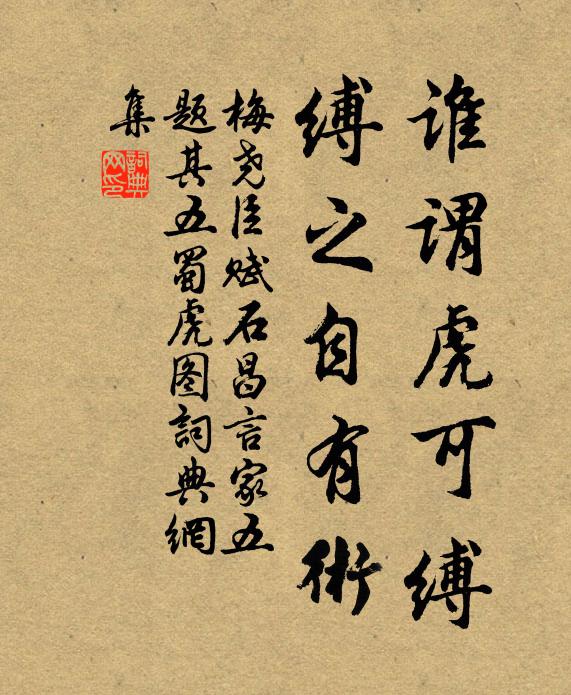 谁谓虎可缚
缚之自有術
梅尧臣赋石昌言家五
题其五蜀虎图詞典網
集
詞典
网印